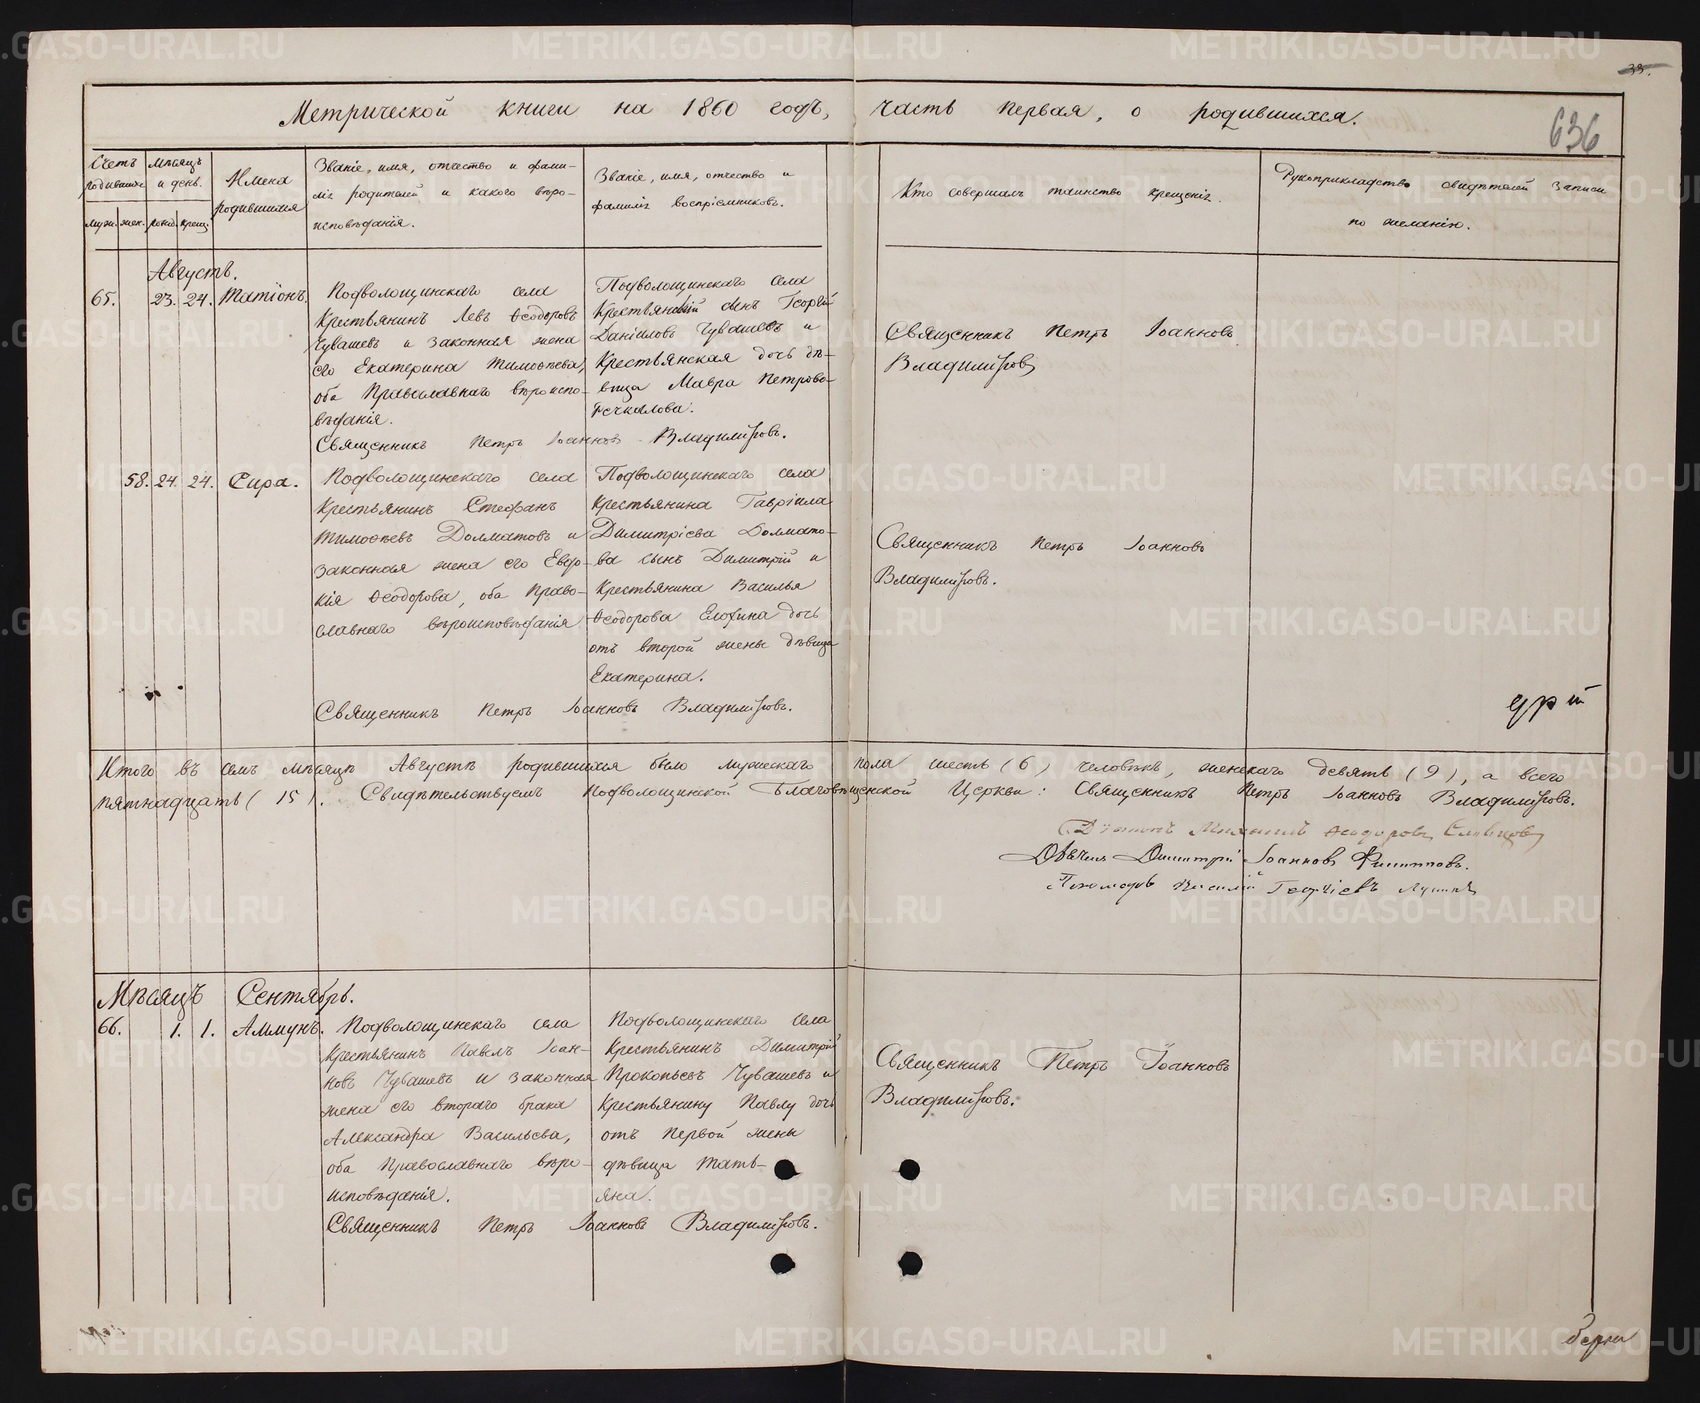 33.
636
Метрической книги на 1860 годъ, часть первая, о родившихся.
Счетъ родившихся
муж. жен.
Мѣсяцъ и день.
рожд. крещ.
Имена родившихся
Званіе, имя, отчество и фами-
лія родителей и какого вѣро-
исповѣданія.
Званіе, имя, отчество и
фамилія воспріемниковъ.
Кто совершалъ таинство крещенія.
Рукоприкладство свидѣтелей записи
по желанію.
Августъ.
65. 23. 24. Татіонъ.
Подволошинскаго села
Крестьянинъ Левъ Ѳеодоровъ
Чувашевъ и законная жена
его Екатерина Тимоѳеева,
оба Православнаго вѣроиспо-
вѣданія.
Подволошинскаго села
Крестьянскій сынъ Георгій
Даніиловъ Чувашевъ и
Крестьянская дочь дѣ-
вица Мавра Петрова
Священникъ Петръ Іоанновъ Владиміровъ.
Священникъ Петръ Іоанновъ
Владиміровъ
58. 24. 24. Сира.
Подволошинскаго села
Крестьянинъ Стефанъ
Тимоѳеевъ Долматовъ и
законная жена его Евдо-
кія Ѳеодорова, оба Право-
славнаго вѣроисповѣданія
Подволошинскаго села
Крестьянина Гавріила
Димитріева Долмато-
ва сынъ Димитрій и
Крестьянина Василья
Ѳеодорова Елохина дочь
отъ второй жены дѣвица
Екатерина.
Священникъ Петръ Іоанновъ Владиміровъ.
Священникъ Петръ Іоанновъ
Владиміровъ.
Итого въ семъ мѣсяцѣ Августѣ родившихся было мужескаго пола шесть (6) человѣкъ, женскаго девять (9), а всего
пятнадцать (15). Свидѣтельствуемъ Подволошинской Благовѣщенской Церкви: Священникъ Петръ Іоанновъ Владиміровъ.
Діаконъ Михаилъ Ѳеодоровъ
Дьячекъ Димитрій Іоанновъ Филипповъ.
Пономарь Василій Георгіевъ
Мѣсяцъ Сентябрь.
66. 1. 1. Аммунъ.
Подволошинскаго села
Крестьянинъ Павелъ Іоан-
новъ Чувашевъ и законная
жена его втораго брака
Александра Васильева,
оба Православнаго вѣро-
исповѣданія.
Подволошинскаго села
Крестьянинъ Димитрій
Прокопьевъ Чувашевъ и
Крестьянину Павлу дочь
отъ первой жены
дѣвица Тать-
яна.
Священникъ Петръ Іоанновъ Владиміровъ.
Священникъ Петръ Іоанновъ
Владиміровъ.
METRIKI.GASO-URAL.RU